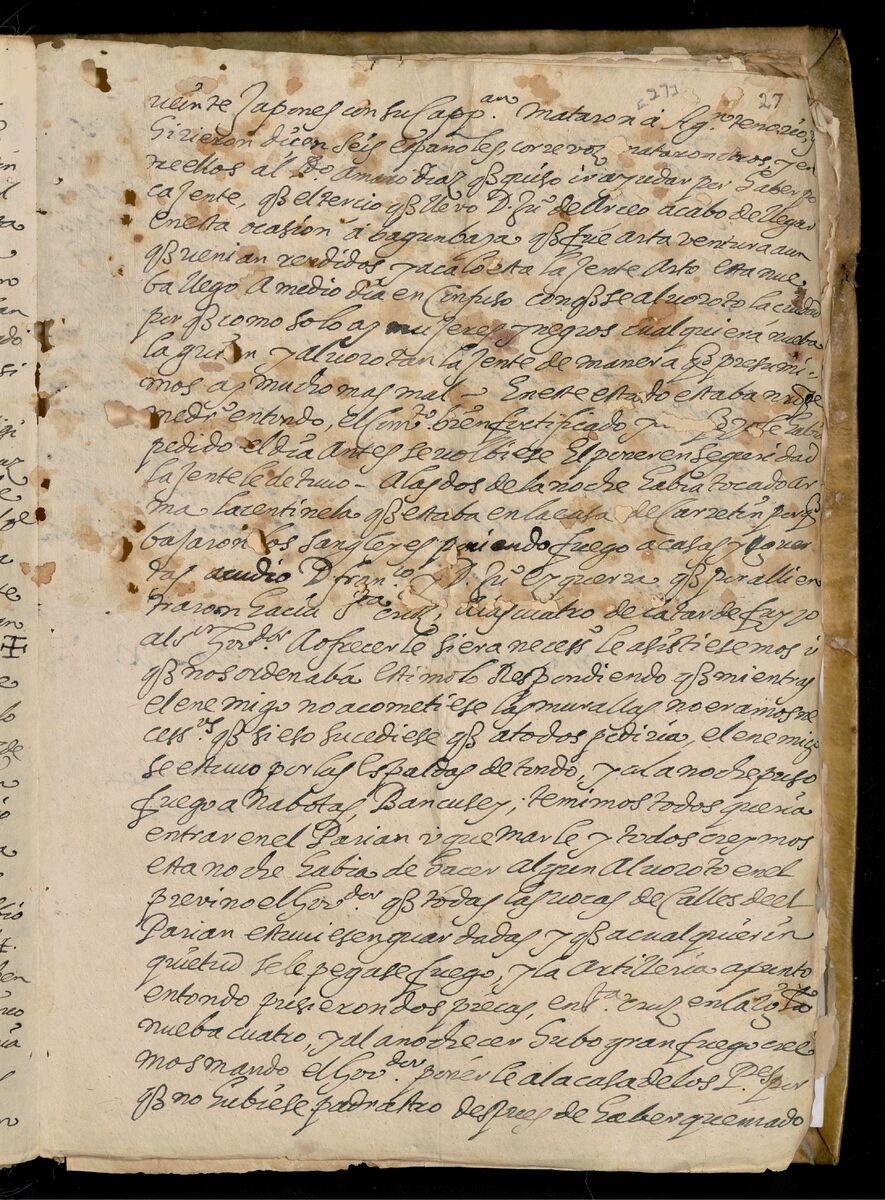 27
veinte Japones con su Capp.an mataron â Ag.n tenerio, y
hirieron dicen seis españoles, corre voz mataron otros, y en
tre ellos al Po Amaro Diaz qe quiso ir ayudar por haber po
ca jente, qe el tercio qe llevo D. Ju.o de Urceo acabo de llegar
en esta ocasion â bagunbaya qe fue arta ventura aun
qe venian rendidos
ba llego A medio dia en Confuso con qe se alvoroto la ciudad
por qe como solo ay mujeres y negros cual quiera nueba
la guian y alvorotan la jente de manera qe presumi
mos ay mucho mas mal — En este estado estaba nro pe
medr.o en tondo, el Conv.to bien fortificado y
pedido el dia Antes se volbiese El poner en seguridad
la jente le detuvo — A las dos de la noche habia tocado ar
ma la centinela qe estaba en la casa de Carretin porq
bajaron los Sangleyes poniendo fuego a casas y guer
tas acudio D. fran.co y D. Ju.o Ezguerra qe por alli en
traron hacia s.ta cruz, a las cuatro de la tarde fuy yo
al s.or Gov.dor A ofrecerle si era necess.o le asistiesemos ô
qe nos ordenaba estimolo Respondiendo qe mientras
el enemigo no acometiese las murallas no eramos ne
cess.os qe si eso sucediese qe a todos pediria, el enemigo
se estuvo por las Espaldas de tondo, y a la noche puso
fuego a Nabotas, Bancusey; temimos todos queria
entrar en el Parian ô quemarle y todos creymos
esta noche habia de hacer algun Alvoroto en el
previno el Gov.dor qe todas las vocas de Calles de el
Parian estuviesen guardadas y qe a cualquier in
quietud se le pegase fuego, y la Artilleria a punto
en tondo pusieron dos piecas, en s.ta cruz en la
nueba cuatro, y al anochecer hubo gran fuego cree
mos mando el Gov.dor ponerle a la casa de los P.es por
qe no hubiese padrastro despues de haber quemado